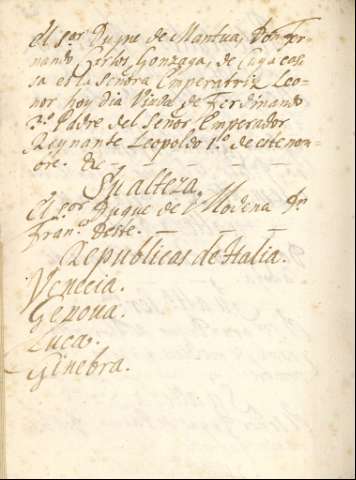 el s.or Duque de Mantua, Don Fer-
nando Carlos Gonzaga, de cuya ca-
sa es la señora Emperatriz Leo-
nor hoy dia Viuda de Ferdinando
3.º Padre del Señor Emperador
Reynante Leopoldo 1.º de este nom-
bre. &c
Su alteza.
El s.or Duque de Modena Dn
Fran.co deste.
Republicas de Italia.
Venecia.
Genoua.
Luca.
Ginebra.